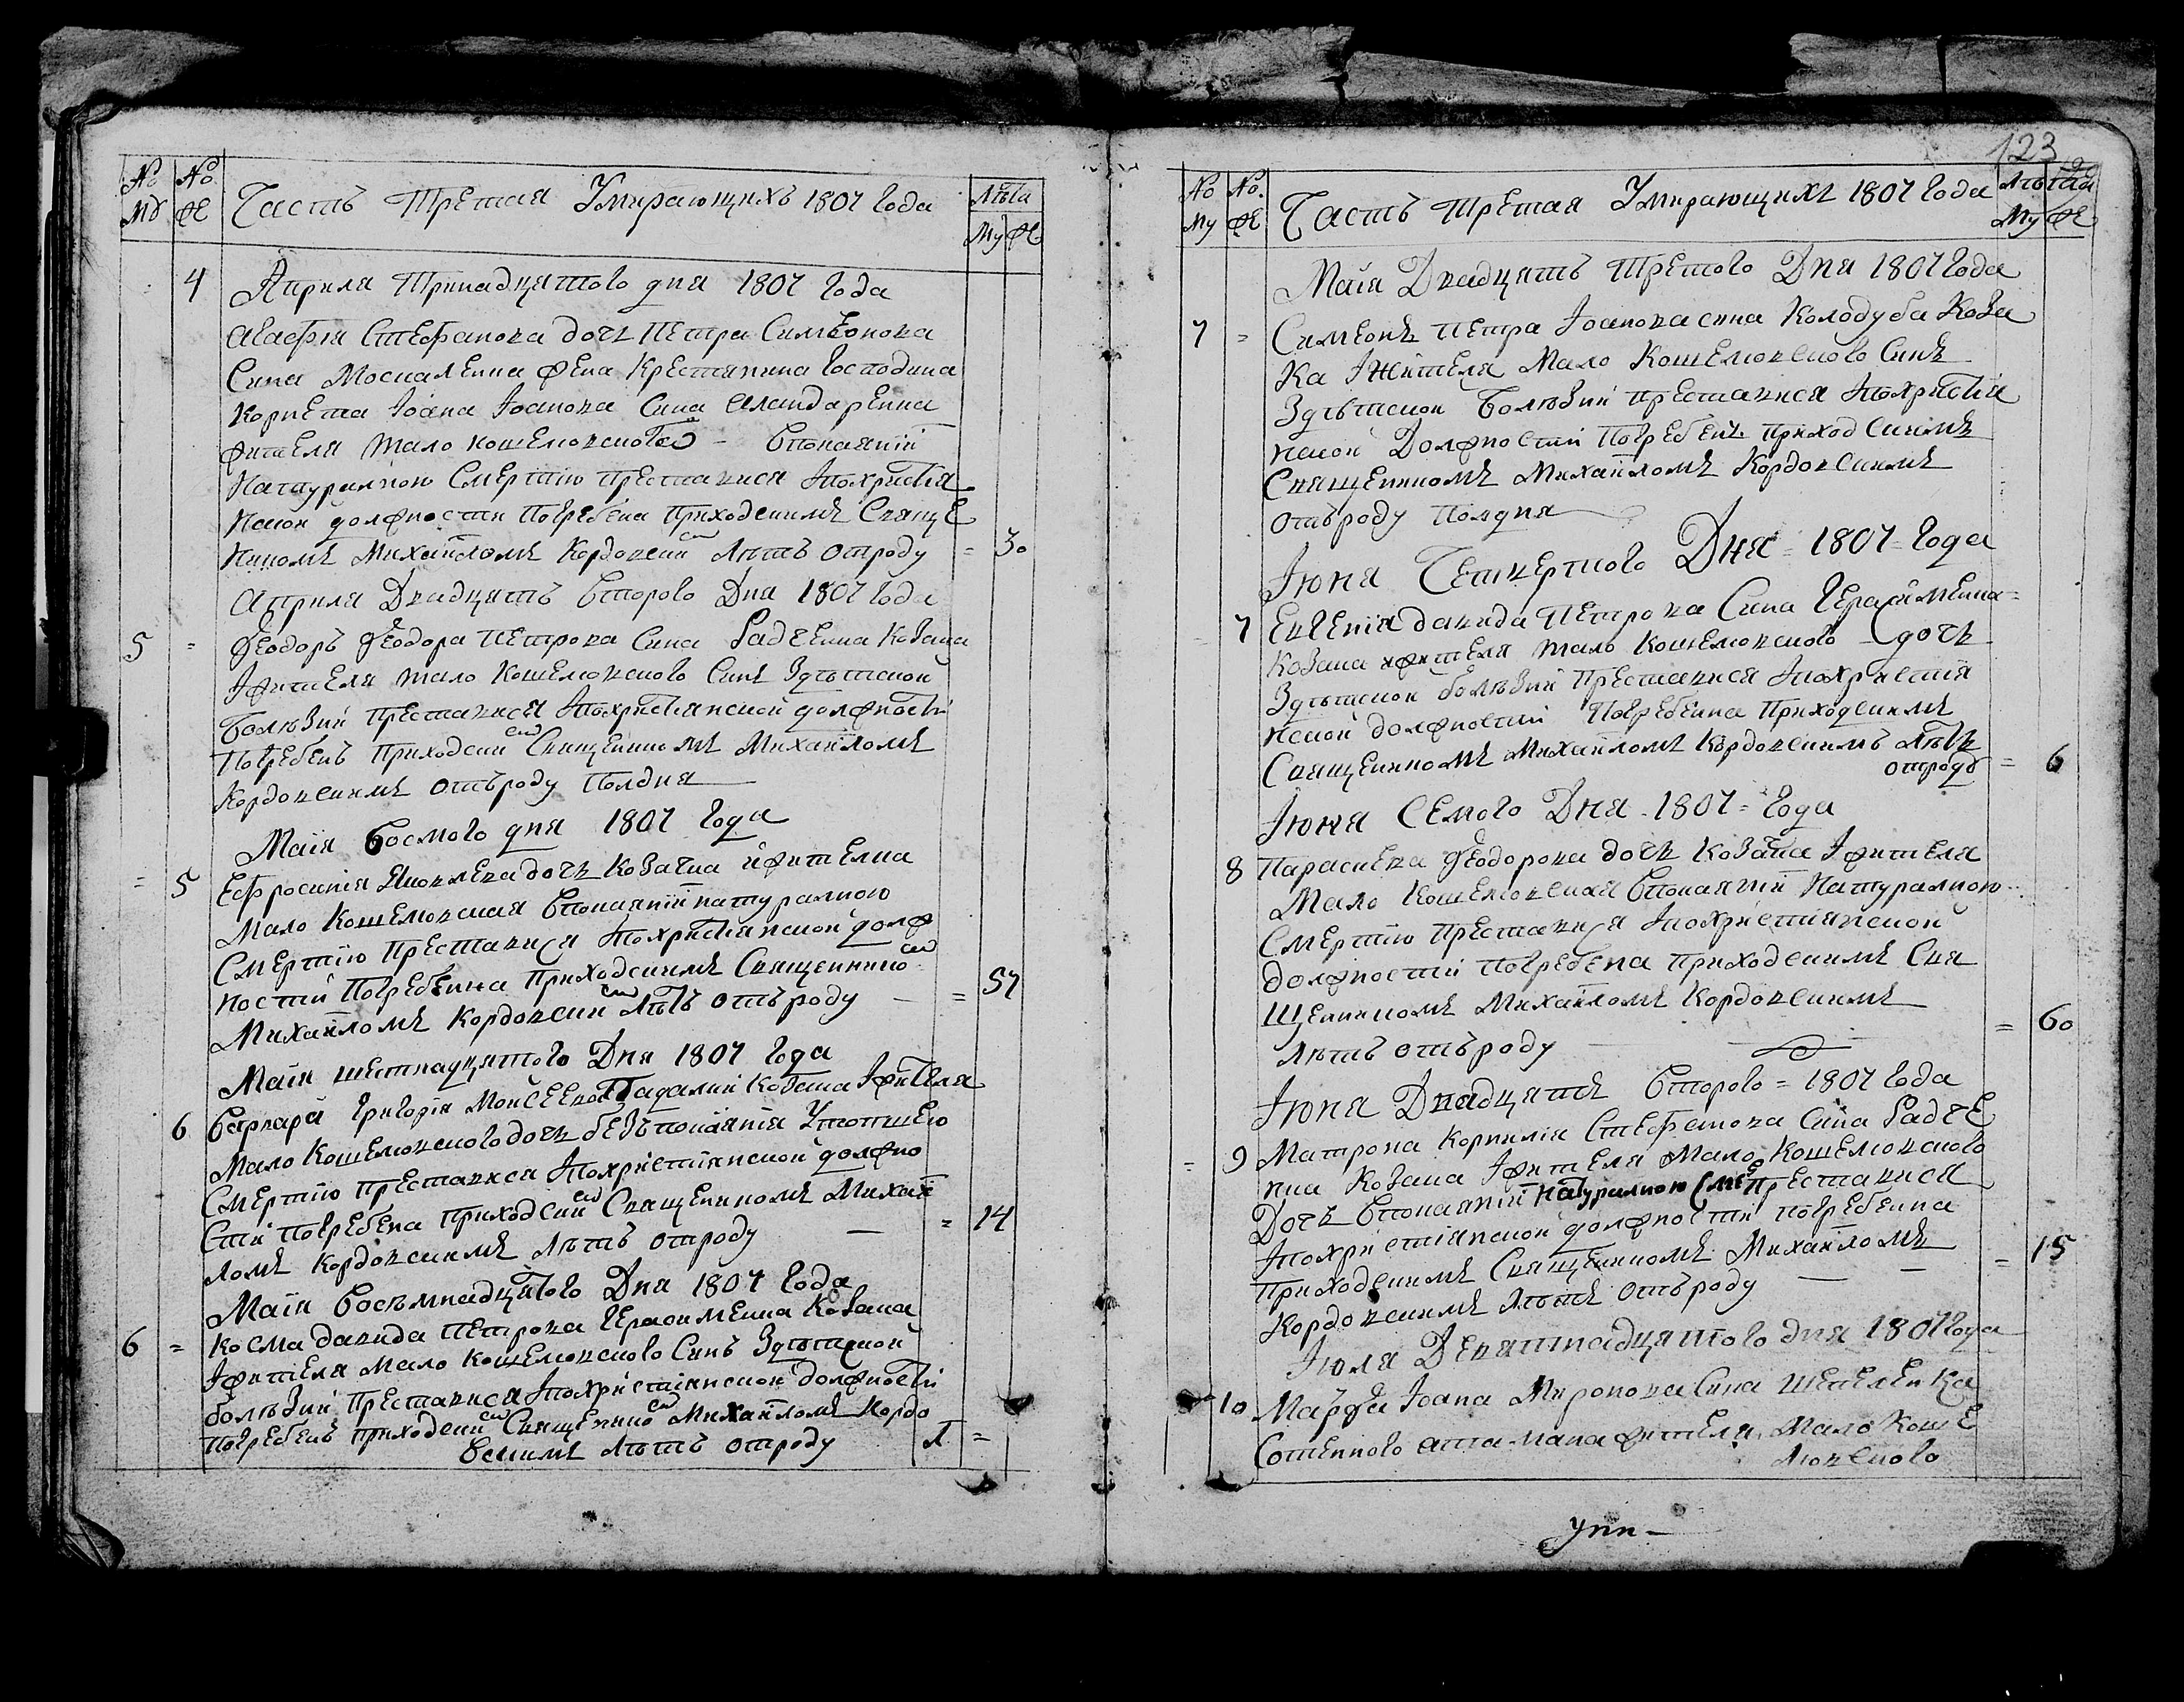 № му № же Часть Третая Умирающихъ 1807 года Лѣта му же
4 Априля Тринадцятого дня 1807 года
Агафiя Стефанова дочь Петра Симеонова
Сина Москаленка жена Крестянина Господина
Корнета Иоана Иоанова Сина
жителя Мало кошелювского – Впокаянiи
Натуралною Смертiю преставися Похристiа
нской должности Погребена Приходскимъ Свяще
ником Михаиломъ Кордовским Лѣтъ отроду = 30
Априля Двадцять Второго Дня 1807 года
5 = Феодоръ Феодора Петрова Сина Радченка Козака
Ижителя Мало Кошелювского Синъ Здѣтской
Болѣзни преставися Похристiанской должности
Погребенъ Приходским Священикомъ Михаиломъ
Кордовскимъ отъроду Полдня
Маiя Восмого дня 1807 года
= 5 Ефросинiя Яковлева дочь Козачка ижителка
Мало Кошелювская Впокаянiи натуралною
Смертiю Преставися Похристiанской долж
ностiи Погребенна Приходскимъ Священником
Михаиломъ Кордовским Лѣтъ отъроду – = 57
Маiя шестнадцятого Дня 1807 года
6 Варвара Григорiя Мойсеева Козака Ижителя
Мало Кошелювского дочь безъ покаянiя Утопшею
Смертiю преставися Похристiянской должно
стiи погребена приходским Священикомъ Михаи
ломъ Кордовскимъ Лѣтъ отроду – = 14
Маiя Восъмнадцятого Дня 1807 года
6 = Косма давида Петрова Герасименка Козака
Ижителя Мало кошелювского Синъ Здѣтской
болѣзни Преставися Похристiянской должности
погребенъ приходским Священником Михаиломъ Кордо
вскимъ Лѣтъ отроду =
123
№ му № же Часть третая Умирающихъ 1807 года Лѣта му же
Маiя Двадцять Третого Дня 1807 года
7 = Симеонъ Петра Иоанова сина Колодуба Коза
ка Ижителя Мало Кошелювского Синъ
Здѣтской Болѣзни преставися Похристiя
нской Должностiи Погребенъ приходскимъ
Священикомъ Михаиломъ Кордовскимъ
отъроду Полдня
Июня Четвертого Дня = 1807 = года
7 Евгенiя давида Петрова Сина Герасименка =
Козака ижителя Мало Кошелювского – дочь
Здѣтской болѣзни Преставися Похристiя
нской должностiи Погребенна Приходскимъ
Священикомъ Михаиломъ Кордовскимъ Лѣтъ
отроду = 6
Июня Семого Дня 1807 = года
8 Параскева Феодорова дочь Козака Ижителя
Мало Кошелювская Впокаянiи Натуралною
Смертiю Преставися Похристiянской
должностiи погребена приходскимъ Свя
щеникомъ Михаиломъ Кордовскимъ
Лѣтъ отъроду = 60
Июня Двадцять Второго = 1807 года
= 9 Матрона Корнилiя Стефанова Сина Радче
нка Козака Ижителя Мало Кошелювского
Дочь Впокаянiи натуралною Сме преставися
Похристiянской должностiи погребенна
приходскимъ Священикомъ Михаиломъ
Кордовскимъ Лѣтъ отъроду – – = 15
Июля Девятнадцятого дня 1807 года
10 Марфа Иоана Миронова Сина Шепеленка
Сотенного атамана жителя Мало Коше
лювского